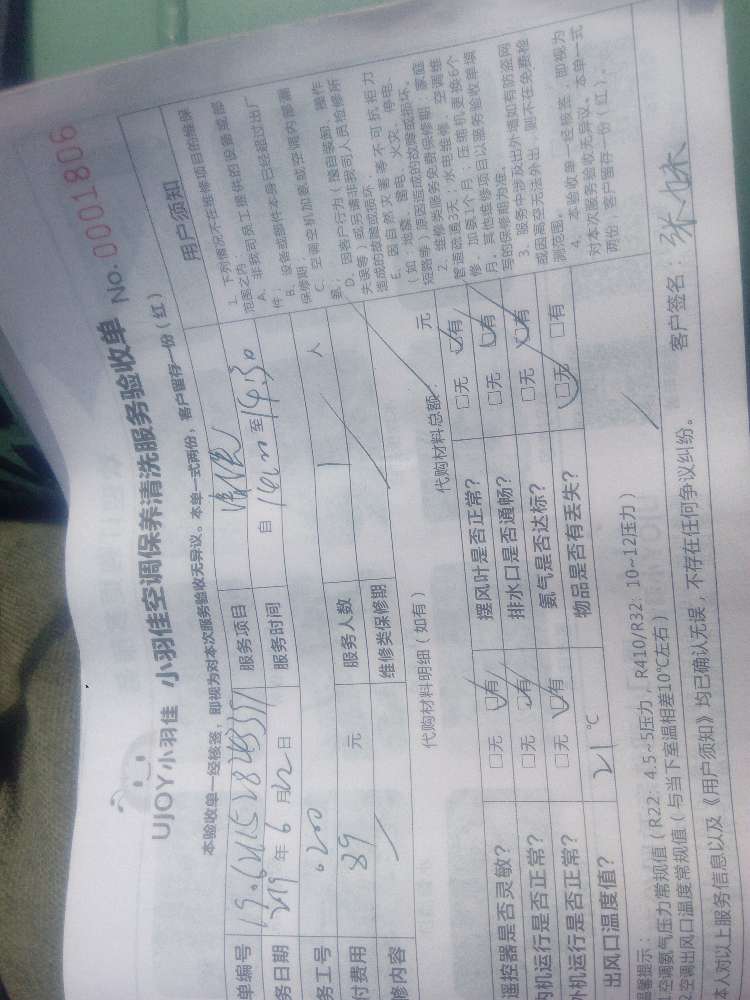 UJOY小羽佳 小羽佳空调保养清洗服务验收单 No. 0001806
本验收单一经核签，即视为对本次服务验收无异议。本单一式两份，客户留存一份（红）
单编号 服务项目 清洗
务日期 2019年6月12日 服务时间 自 至 14:30
务工号 200 服务人数 1 人
付费用 89 元 维修类保修期
修内容
代购材料明细（如有） 代购材料总额： 元
遥控器是否灵敏？ □无 □有 摆风叶是否正常？ □无 □有
内机运行是否正常？ □无 □有 排水口是否通畅？ □无 □有
外机运行是否正常？ □无 □有 氨气是否达标？ □无 □有
出风口温度值？ 21 ℃ 物品是否有丢失？ □无 □有
馨提示：
空调氨气压力常规值（R22：4.5~5压力，R410/R32：10~12压力）
空调出风口温度常规值（与当下室温相差10℃左右）
本人对以上服务信息以及《用户须知》均已确认无误，不存在任何争议纠纷。
客户签名：张妹
用户须知
1、下列情况不在维修项目的维保
范围之内
A、非我司员工提供的设备或部
件；
B、设备或部件本身已经超过出厂
保修期；
C、空调空机加氨或空调内部漏
氨；
D、因客户行为（擅自装卸、操作
失误等）或另请非我司人员检修所
造成的故障或损坏
E、因自然灾害等不可抗拒力
（如：地震、雷电、火灾、停电、
短路等）原因造成的故障或损坏。
2、维修类服务免费保修期：家庭
管道疏通3天；水电维修、空调维
修、加氨1个月；压缩机更换6个
月。其他维修项目以服务验收单填
写的保修期为准。
3、服务中涉及出外墙如有防盗网
或因高空无法外出，则不在免费检
测范围。
4、本验收单一经核签，即视为
对本次服务验收无异议。本单一式
两份，客户留存一份（红）。